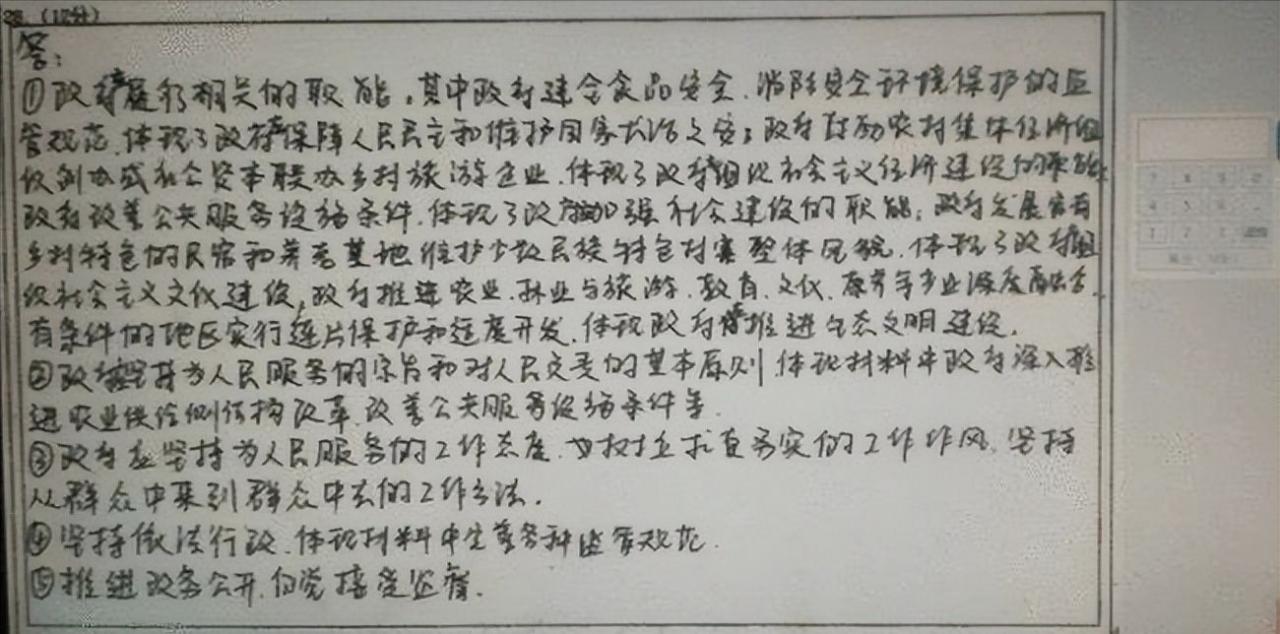 (12分)
答:
①政府履行相关的职能。其中政府健全食品安全、消防安全环境保护的监
管规范,体现了政府保障人民民主和维护国家长治久安;政府鼓励农村集体经济组
织创办或和个资本联办乡村旅游企业,体现了政府组织社会主义经济建设的职能;
政府改善公共服务设施条件,体现了政府加强社会建设的职能;政府发展富有
乡村特色的民宿和养老基地维护少数民族特色村寨整体风貌,体现了政府组
织社会主义文化建设;政府推进农业、林业与旅游、教育、文化、康养等产业深度融合,
有条件的地区实行连片保护和适度开发,体现政府推进生态文明建设。
②政府坚持为人民服务的宗旨和对人民负责的基本原则,体现材料中政府深入推
进农业供给侧结构改革,改善公共服务设施条件等
③政府应坚持为人民服务的工作态度,树立求真务实的工作作风,坚持
从群众中来到群众中去的工作方法.
④坚持依法行政,体现材料中完善各种监管规范.
⑤推进政务公开,自觉接受监督.